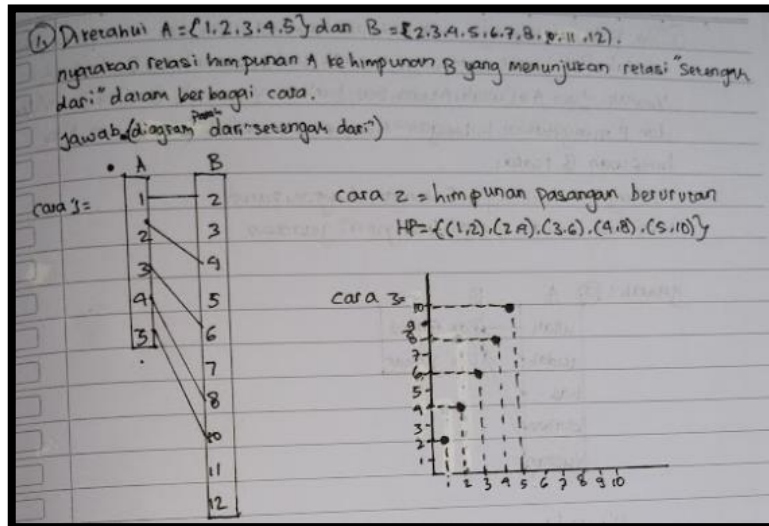 1. Diketahui A = {1.2.3.4.5} dan B = {2.3.4.5.6.7.8. .11.12).
nyatakan relasi himpunan A ke himpunan B yang menunjukan relasi "setengah
dari" dalam berbagai cara.
Jawab (diagram Panah dari "setengah dari")
A B
cara 1 =
1 2
2 3
3 4
4 5
5 6
7
8
10
11
12
cara 2 = himpunan pasangan berurutan
HP = {(1,2).(2,4).(3.6).(4.8).(5,10)}
cara 3 =
10
9
8
7
6
5
4
3
2
1
1 2 3 4 5 6 7 8 9 10